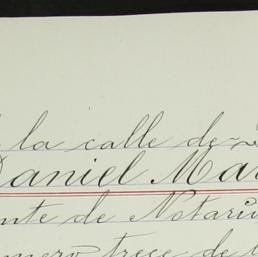 la calle de
Daniel Mar
nte de Notari
mero trece de